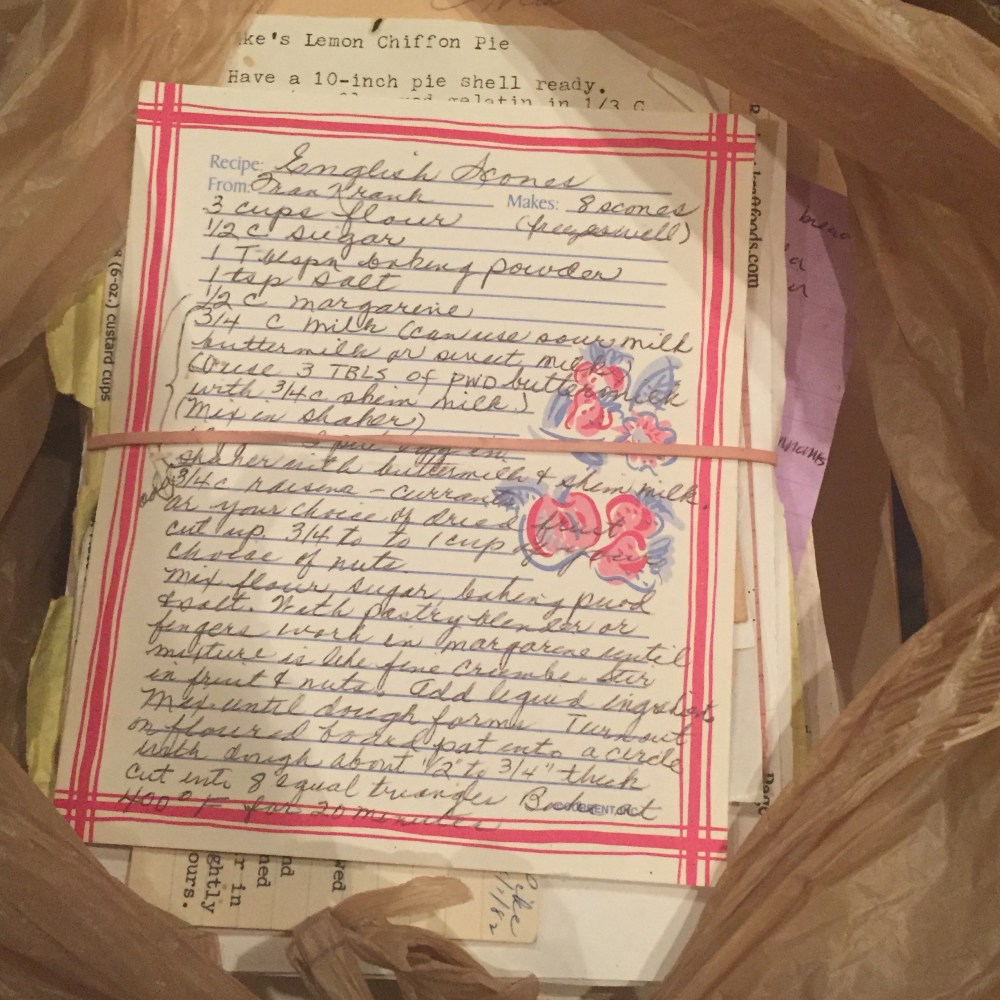 ke's Lemon Chiffon Pie
Have a 10-inch pie shell ready.
gelatin in 1/3 C
Recipe: English Scones
From: Fran Krank Makes: 8 scones
3 cups flour (freezes well)
1/2 C sugar
1 Tblspn baking powder
1 tsp salt
1/2 C margarine
3/4 C milk (can use sour milk
buttermilk or sweet milk)
(I use 3 TBLS of PWD buttermilk
with 3/4 c skim milk.)
(Mix in shaker)
I put egg in
shaker with buttermilk & skim milk.
add 3/4 c raisins - currants
or your choice of dried fruit
cut up. 3/4 to to 1 cup of your
choice of nuts.
Mix flour, sugar, baking pwod
& salt. With pastry blender or
fingers work in margarine until
mixture is like fine crumbs. Stir
in fruit & nuts. Add liquid ingredients
Mix until dough forms Turn out
on floured board pat into a circle
with dough about 1/2" to 3/4" thick
cut into 8 equal triangles Bake at
400° F for 20 minutes
©CURRENT, INC.
(6-oz.) custard cups
foods.com
wed
nd
ned
r in
ghtly
ours.